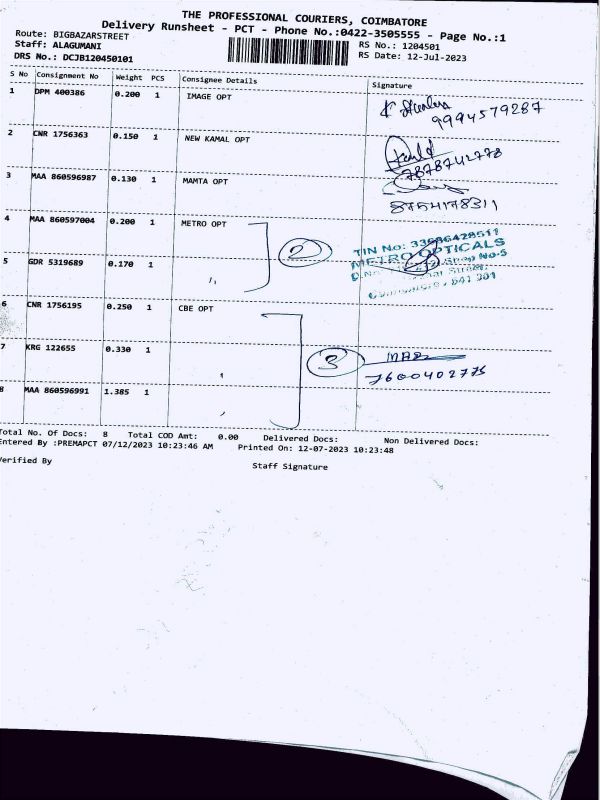 THE PROFESSIONAL COURIERS, COIMBATORE
Delivery Runsheet - PCT - Phone No.:0422-3505555 - Page No.:1
Route: BIGBAZARSTREET
Staff: ALAGUMANI
RS No.: 1204501
DRS No.: DCJB120450101
RS Date: 12-Jul-2023
S No Consignment No Weight PCS Consignee Details Signature
1 DPM 400386 0.200 1 IMAGE OPT
9994579287
2 CNR 1756363 0.150 1 NEW KAMAL OPT
7878742778
3 MAA 860596987 0.130 1 MAMTA OPT
8754178311
4 MAA 860597004 0.200 1 METRO OPT
2
TIN No: 33686428511
METRO OPTICALS
Shop No-5
5 GDR 5319689 0.170 1 ,,
Coimbatore - 641 001
6 CNR 1756195 0.250 1 CBE OPT
7 KRG 122655 0.330 1 ,
3
7600402775
8 MAA 860596991 1.385 1 ,
Total No. Of Docs: 8 Total COD Amt: 0.00 Delivered Docs: Non Delivered Docs:
Entered By :PREMAPCT 07/12/2023 10:23:46 AM Printed On: 12-07-2023 10:23:48
Verified By Staff Signature